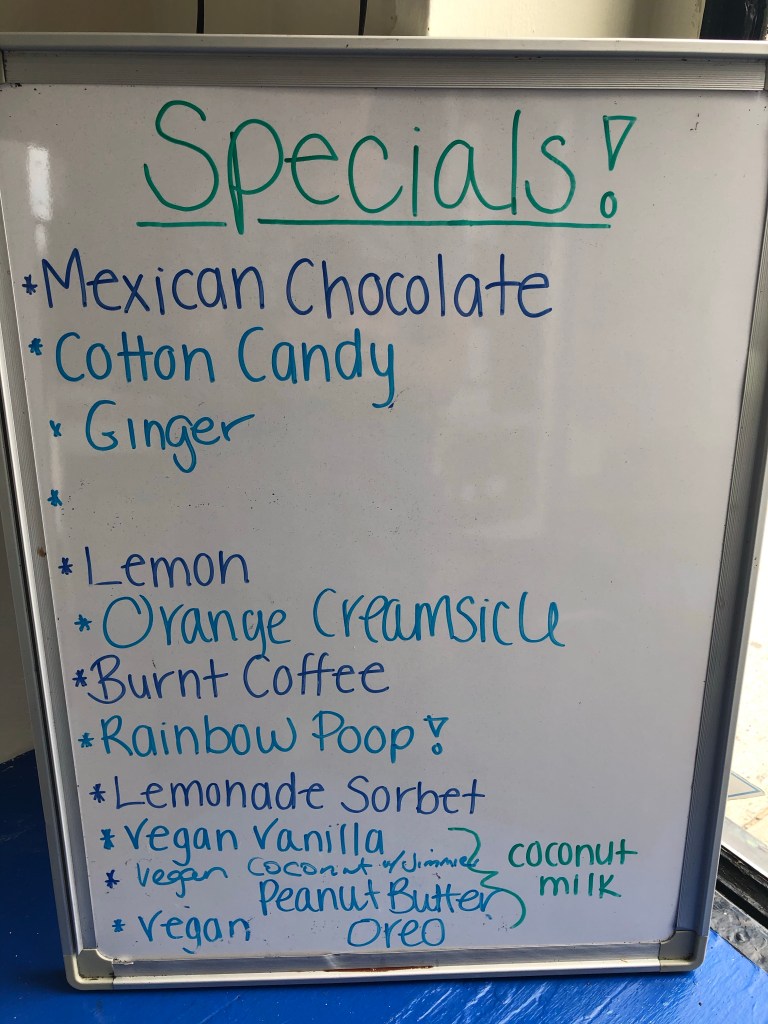 Specials!
*Mexican Chocolate
*Cotton Candy
*Ginger
*
*Lemon
*Orange Creamsicle
*Burnt Coffee
*Rainbow Poop!
*Lemonade Sorbet
*Vegan Vanilla
*Vegan Coconut w/Jimmies
Peanut Butter
*Vegan Oreo
coconut
milk